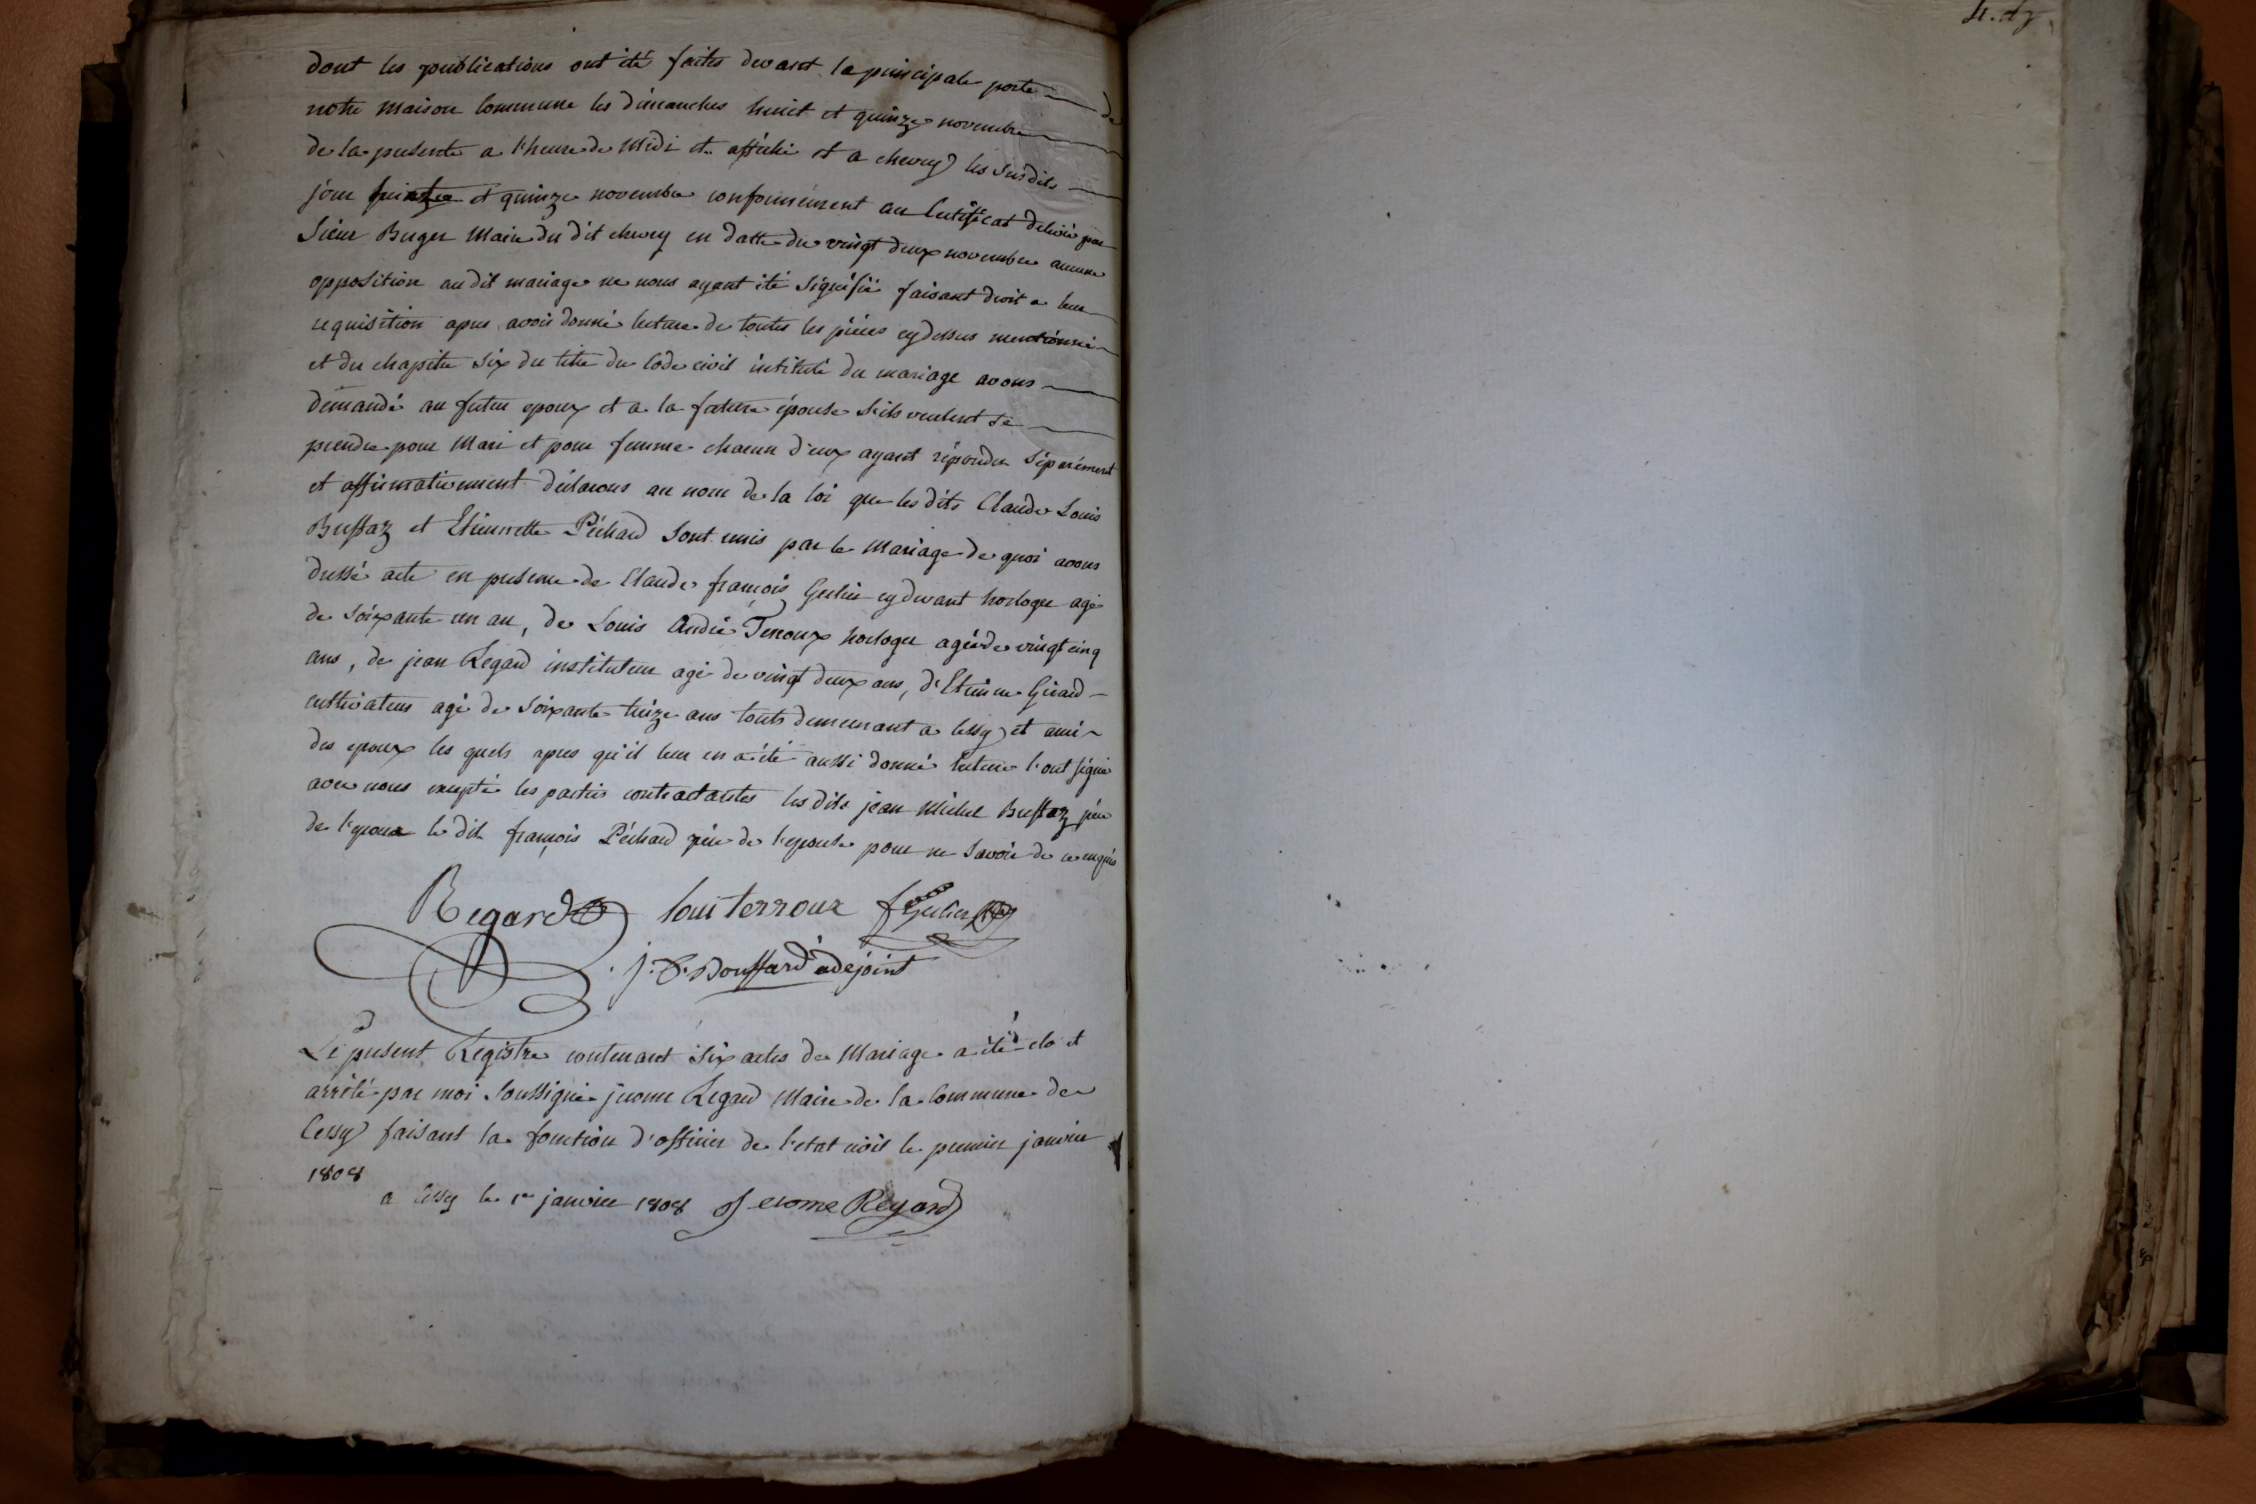 dont les publications ont été faites devant la principale porte de
notre maison commune les dimanches huit et quinze novembre
de la presente a l'heure de midi et affiché et a chevry les susdits
jour et quinze novembre conformement au Certificat delivré par
Sieur Buger Maire du dit chevry en datte du vingt deux novembre aucune
opposition au dit mariage ne nous ayant été signifié faisant droit a leur
requisition apres avoir donné lecture de toutes les pieces cy dessus mentionné
et du chapitre six du titre du Code civil intitulé du mariage avons
demandé au futur epoux et a la future épouse s'ils veulent se
prendre pour Mari et pour femme chacun d'eux ayant répondu séparément
et affirmativement déclarons au nom de la loi que les dits Claude Louis
Buffaz et Etiennette Péchard sont unis par le Mariage de quoi avons
dressé acte en presence de Claude françois Gerlier cydevant horloger agé
de soixante un an, de Louis André Terroux horloger agé de vingt cinq
ans, de jean Regard instituteur agé de vingt deux ans, d'Etienne Girard
cultivateur agé de soixante treize ans touts demeurant a Cessy et ami
des epoux les quels apres qu'il leur en a été aussi donné lecture l'ont signé
avec nous excepté les parties contractantes les dits jean Michel Buffaz pére
de l'epoux le dit françois Péchard pére de l'epouse pour ne savoir de ce enquis
Regard Loui terroux f Gerlier
J. Bouffard adejoint
Le present Registre contenant six actes de Mariage a été clo et
arrêté par moi soussigné jerome Regard Maire de la Commune de
Cessy faisant la fonction d'officier de l'etat civil le premier janvier
1808
a Cessy le 1er janvier 1808 Jerome Regard